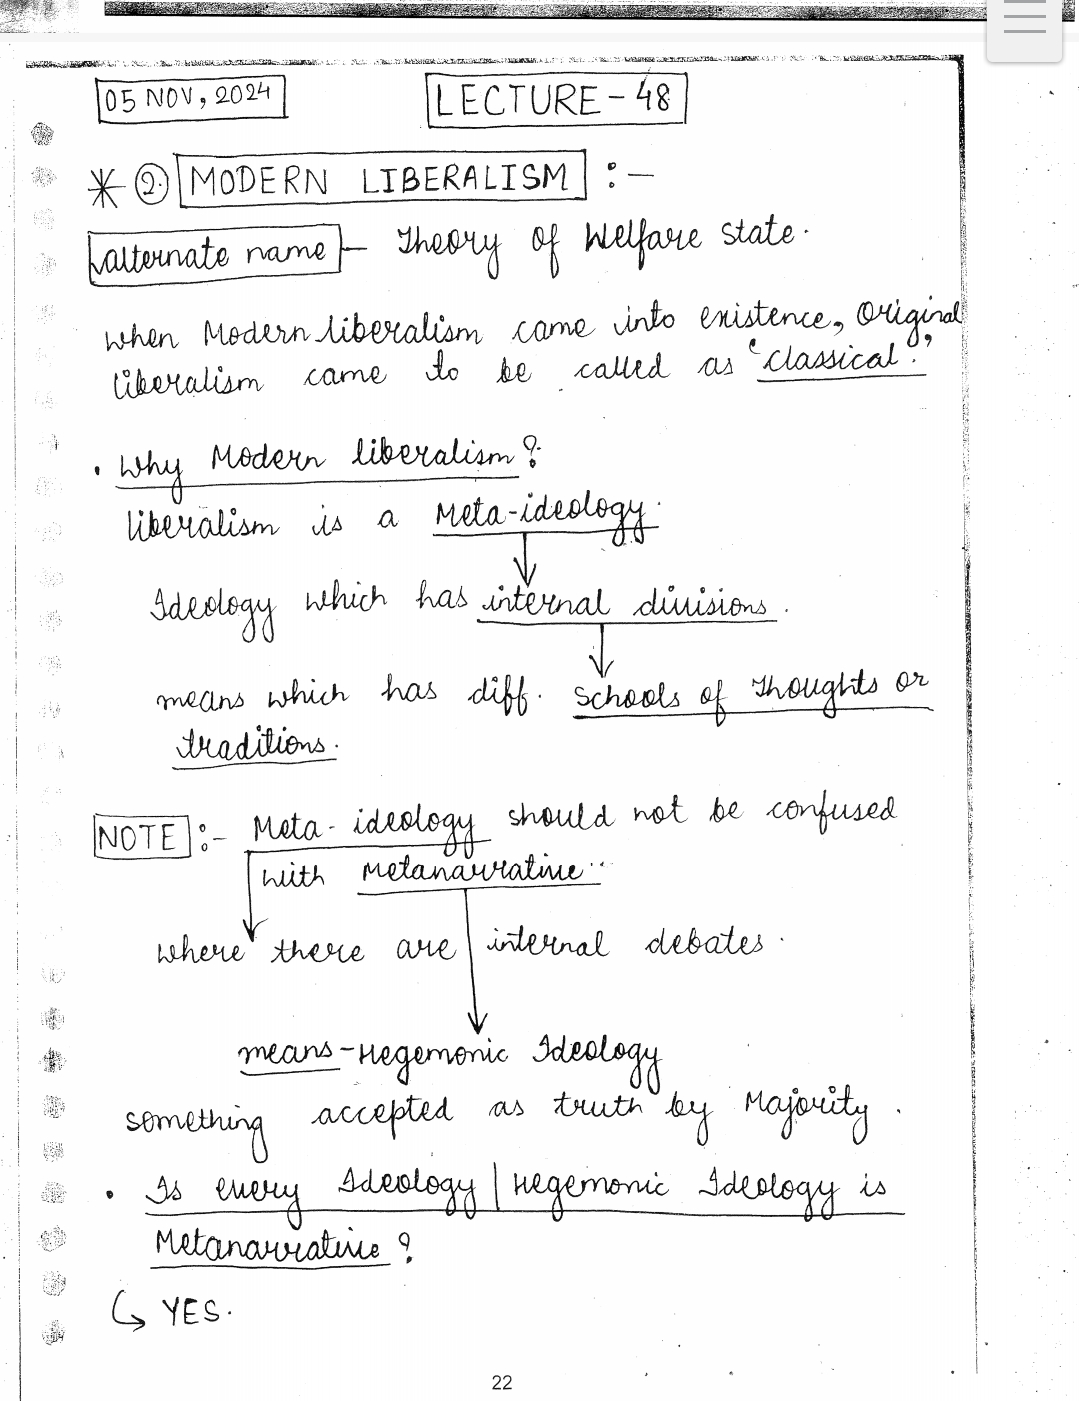 05 NOV, 2024
LECTURE - 48
* ②. MODERN LIBERALISM :-
alternate name - Theory of Welfare State.
when Modern liberalism came into existence, Original
liberalism came to be called as 'classical.'
• Why Modern liberalism?
liberalism is a Meta-ideology.
Ideology which has internal divisions.
means which has diff. Schools of Thoughts or
traditions.
NOTE :- Meta-ideology should not be confused
with Metanarrative.
where there are internal debates.
means - Hegemonic Ideology
something accepted as truth by Majority.
• Is every Ideology | Hegemonic Ideology is
Metanarrative?
↳ YES.
22